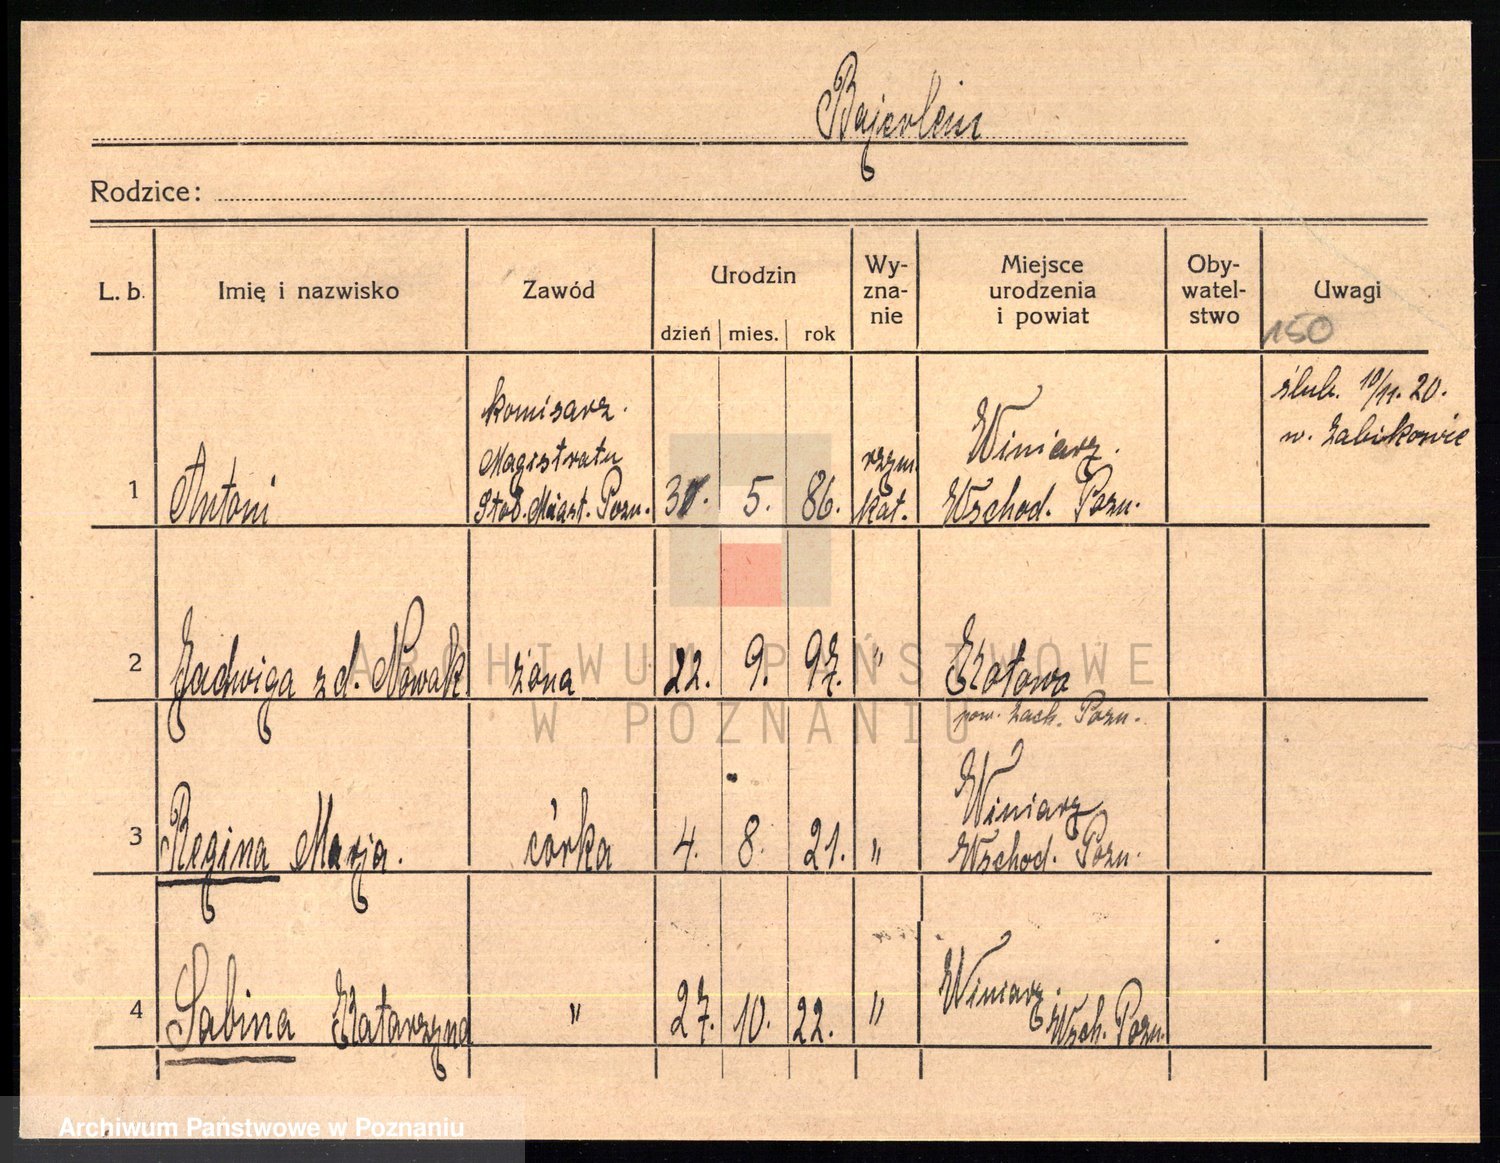 Bajerlein
Rodzice:
L. b. Imię i nazwisko Zawód Urodzin dzień mies. rok Wy-zna-nie Miejsce urodzenia i powiat Oby-watel-stwo Uwagi
150
1 Antoni komisarz. Magistratu Stoł. Miast. Pozn. 31. 5. 86. rzym. kat. Winiary. Wschod. Pozn. ślub. 10/11. 20. w. Żabikowie
2 Jadwiga z d. Nowak żona 22. 9. 97. " Kotowo pow. Zach. Pozn.
3 Regina Marja. córka 4. 8. 21. " Winiary Wschod. Pozn.
4 Sabina Katarzyna " 27. 10. 22. " Winiary. Wsch. Pozn.
ARCHIWUM PAŃSTWOWE
W POZNANIU
Archiwum Państwowe w Poznaniu